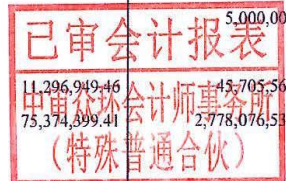 5,000,00
已审会计报表
11,296,949.46 45,705,56
中审众环会计师事务所
75,374,399.41 2,778,076,53
（特殊普通合伙）